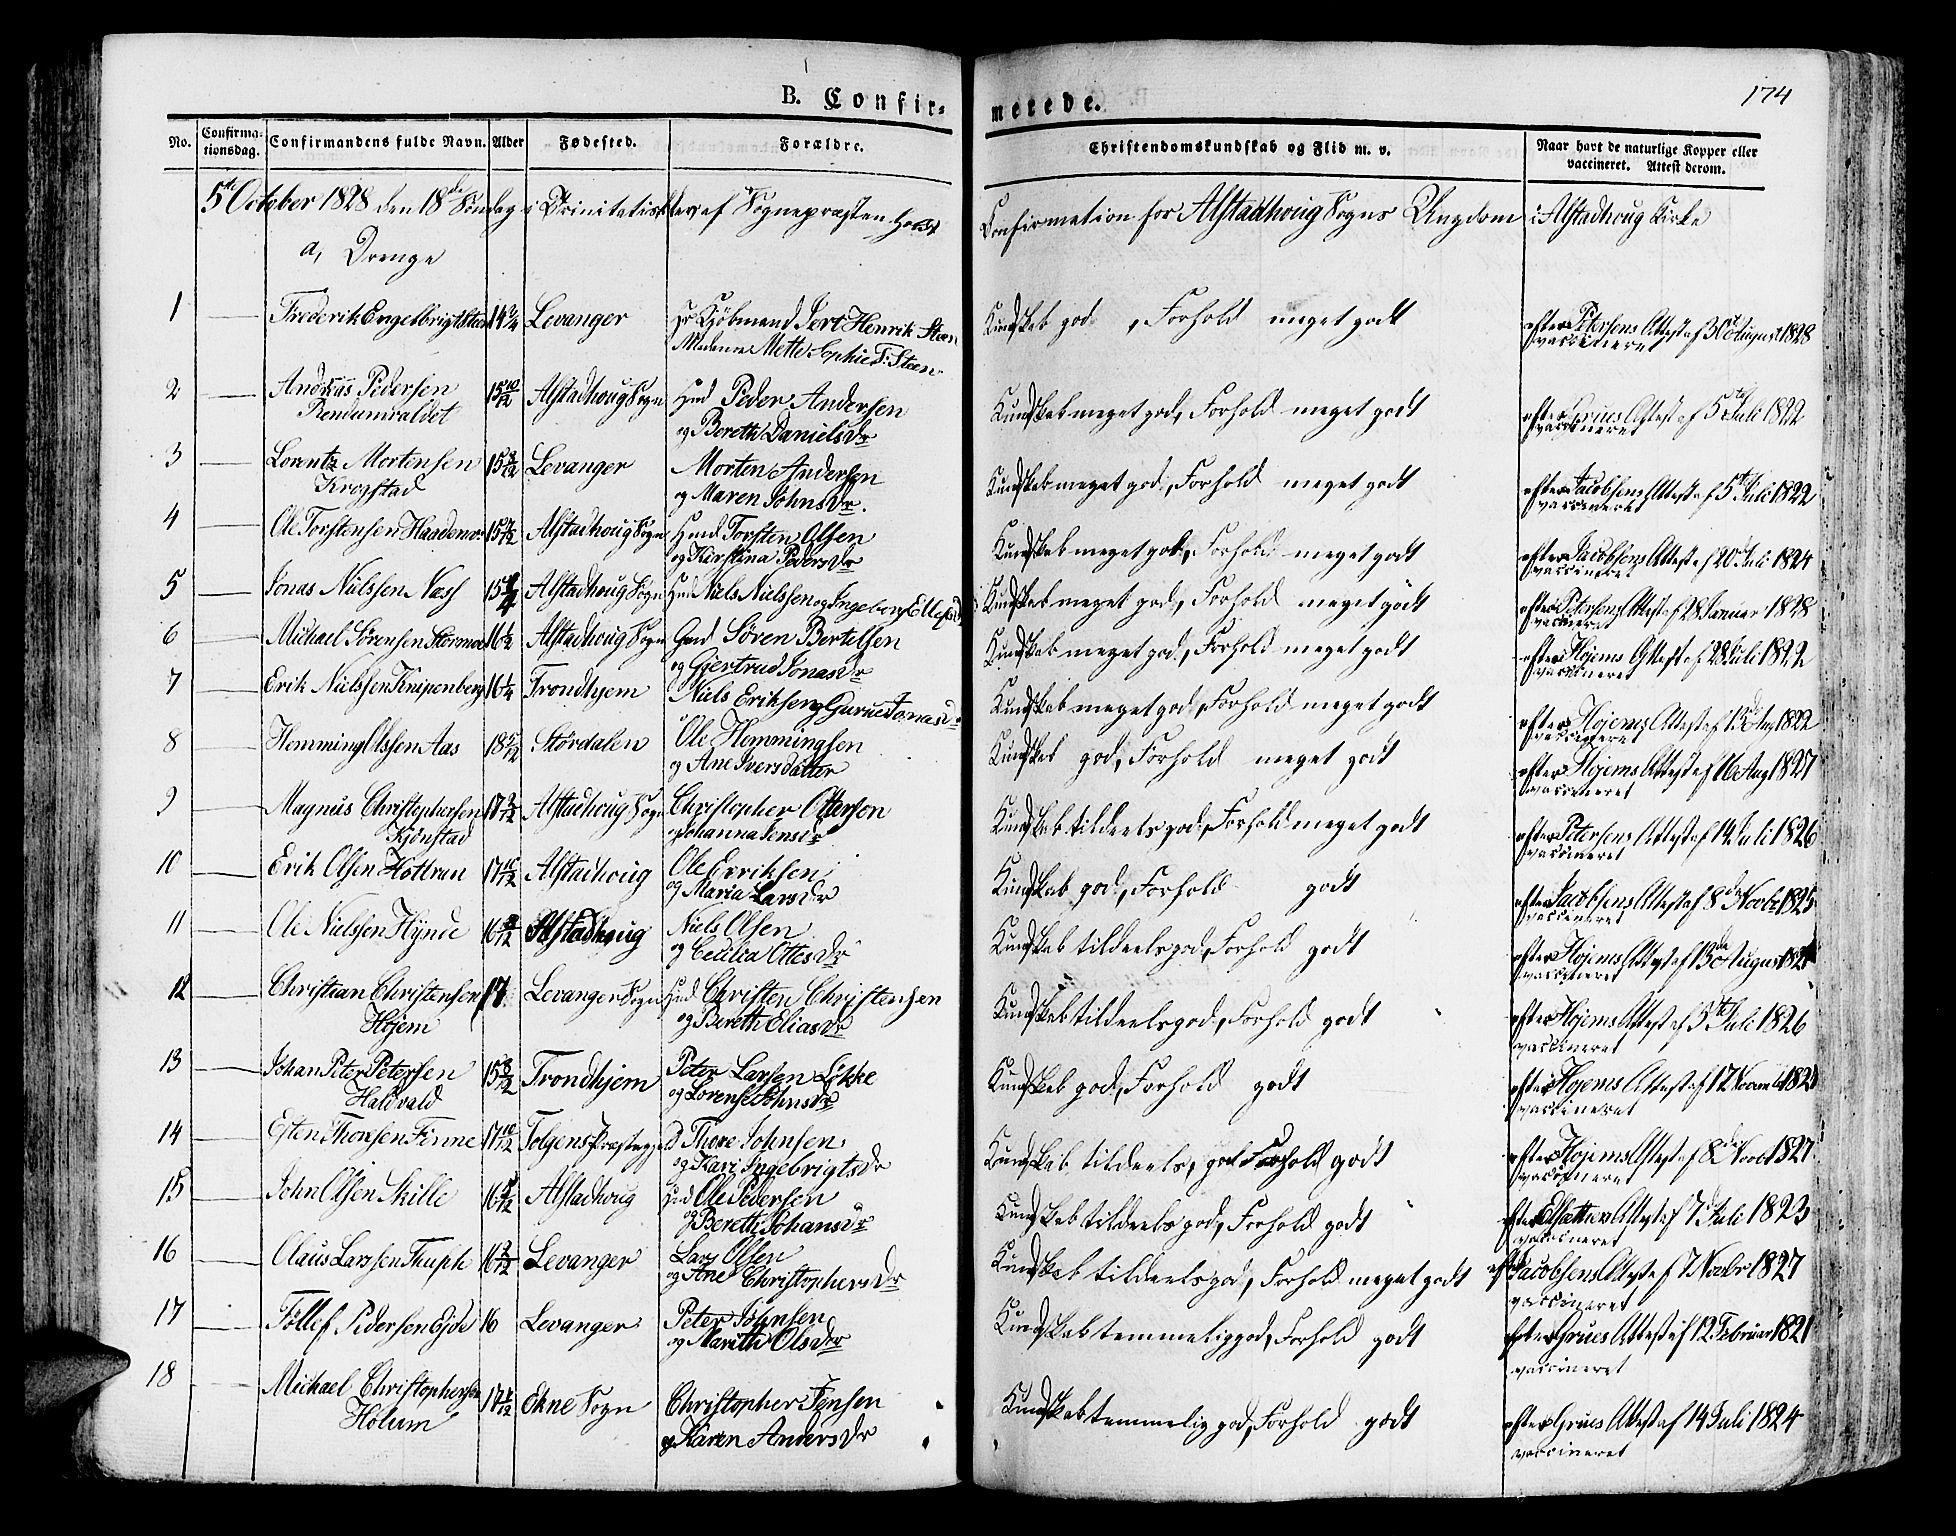 B. Confir-
merede.
174
No.
Confirma-
tionsdag.
Confirmandens fulde Navn.
Alder
Fødested.
Forældre.
Christendomskundskab og Flid m. v.
Naar havt de naturlige Kopper eller
vaccineret. Attest derom.
5te October 1828 den 18de Søndag i Trinitatis af Sognepræsten Holst Confirmation for Alstadhoug Sogns Ungdom i Alstadhoug Kirke
a, Drenge
1 Frederik Engelbrigt Steen Levanger Hr Kjöbmand Henrik Steen Kundskab god, Forhold meget godt efter Petersens Attest af 30 August 1828
Madame Mette Sophie F: Steen vaccineret
2 Andreas Pedersen 15 10/12 Alstadhoug Sogn Hmd Peder Andersen Kundskab meget god, Forhold meget godt efter Grues Attest af 5te Juli 1822
og Bereth Daniels Dr vaccineret
3 Lorentz Mortensen Levanger Morten Andersen Kundskab meget god, Forhold meget godt efter Jacobsens Attest af 5te Juli 1822
Krogstad og Maren Johns Dr. vaccineret
4 Ole Torstensen Alstadhoug Sogn Hmd Torsten Olsen Kundskab meget god, Forhold meget godt efter Jacobsens Attest af 20de Juli 1824
og Kirstina Peders Dr vaccineret
5 Jonas Nielssen Næss Alstadhoug Sogn Hmd Niels Nielssen og Ingeborg Kundskab meget god, Forhold meget godt efter Petersens Attest af 28 Januar 1828
vaccineret
6 Michael Sörensen 16 1/2 Alstadhoug Sogn Gmd Sören Bertelsen Kundskab meget god, Forhold meget godt efter Höjems Attest af 28 Juli 1822
og Gjertrud Jonas Dr vaccineret
7 Erik Nielssen Knipenberg 16 1/4 Trondhjem Niels Eriksen og Jonas Dr Kundskab meget god, Forhold meget godt efter Höjems Attest af Aug 1822
vaccineret
8 Hemming Olssen Aas Stördalen Ole Hemmingsen Kundskab god, Forhold meget godt efter Höjems Attest af 16 Aug 1827
og Ane Iversdatter vaccineret
9 Magnus Christophersen Alstadhoug Sogn Christopher Ottersen Kundskab tildeels god, Forhold meget godt efter Petersens Attest af 14 Juli 1826
Kjönstad og Johanna Jens Dr vaccineret
10 Erik Olsen Hottran 17 10/12 Alstadhoug Ole Erriksen Kundskab god, Forhold godt efter Jacobsens Attest af 8de Novbr 1825
og Maria Lars Dr vaccineret
11 Ole Nielssen Hynde Alstadhoug Niels Olsen Kundskab tildeels god, Forhold godt efter Höjems Attest af 13de August
og Cecilia Ottes Dr vaccineret
12 Christian Christensen 17 Levanger Sogn Hmd Christen Christensen Kundskab tildeels god, Forhold godt efter Höjems Attest af 5te Juli 1826
Höjem og Bereth Elias Dr vaccineret
13 Johan Peter Petersen Trondhjem Peter Larsen Likke Kundskab god, Forhold godt efter Höjems Attest af 12
Haldvald og Lorense Johns Dr vaccineret
14 Esten Thoresen Finne 17 10/12 Tolgens Præstegjeld Thore Johnsen Kundskab tildeels god Forhold godt efter Höjems Attest af 8de Novbr 1827
og Kari Ingebrigts Dr vaccineret
15 John Olsen Skille Alstadhoug Hmd Ole Pedersen Kundskab tildeels god, Forhold godt Attest af 7de Juli 1823
og Bereth Johans Dr vaccineret
16 Claus Larssen Levanger Lars Olsen Kundskab tildeels god, Forhold meget godt efter Jacobsens Attest af 7 Novbr 1827
og Ane Christophers Dr vaccineret
17 Töllef Pedersen Ejde 16 Levanger Peter Johnsen Kundskab temmelig god, Forhold godt efter Grues Attest af 12 Februar 1821
og Mareth Ols Dr vaccineret
18 Michael Christophersen Ekne Sogn Christopher Jensen Kundskab temmelig god, Forhold godt efter Grues Attest af 14 Juli 1824
Holum og Karen Anders Dr vaccineret